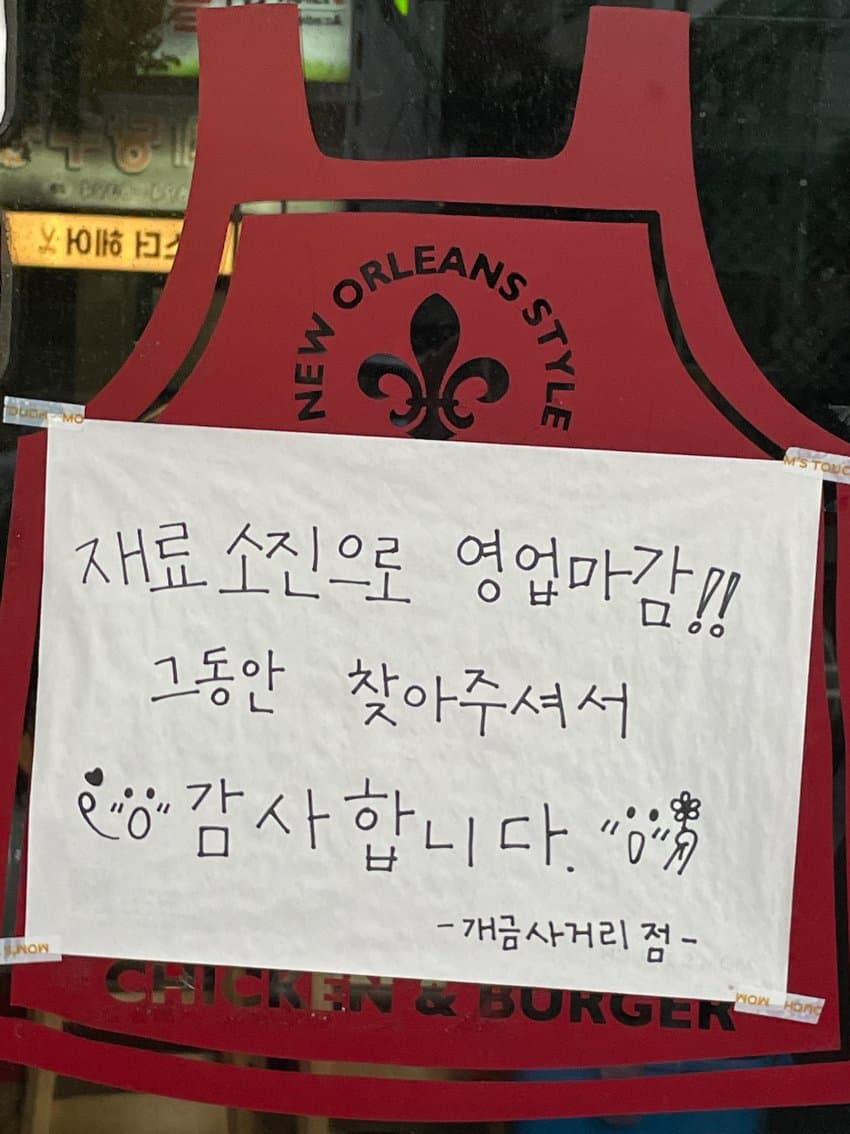 스타 헤어
NEW ORLEANS STYLE
재료 소진으로 영업마감!!
그동안 찾아주셔서
감사합니다.
-개금사거리점-
CHICKEN & BURGER